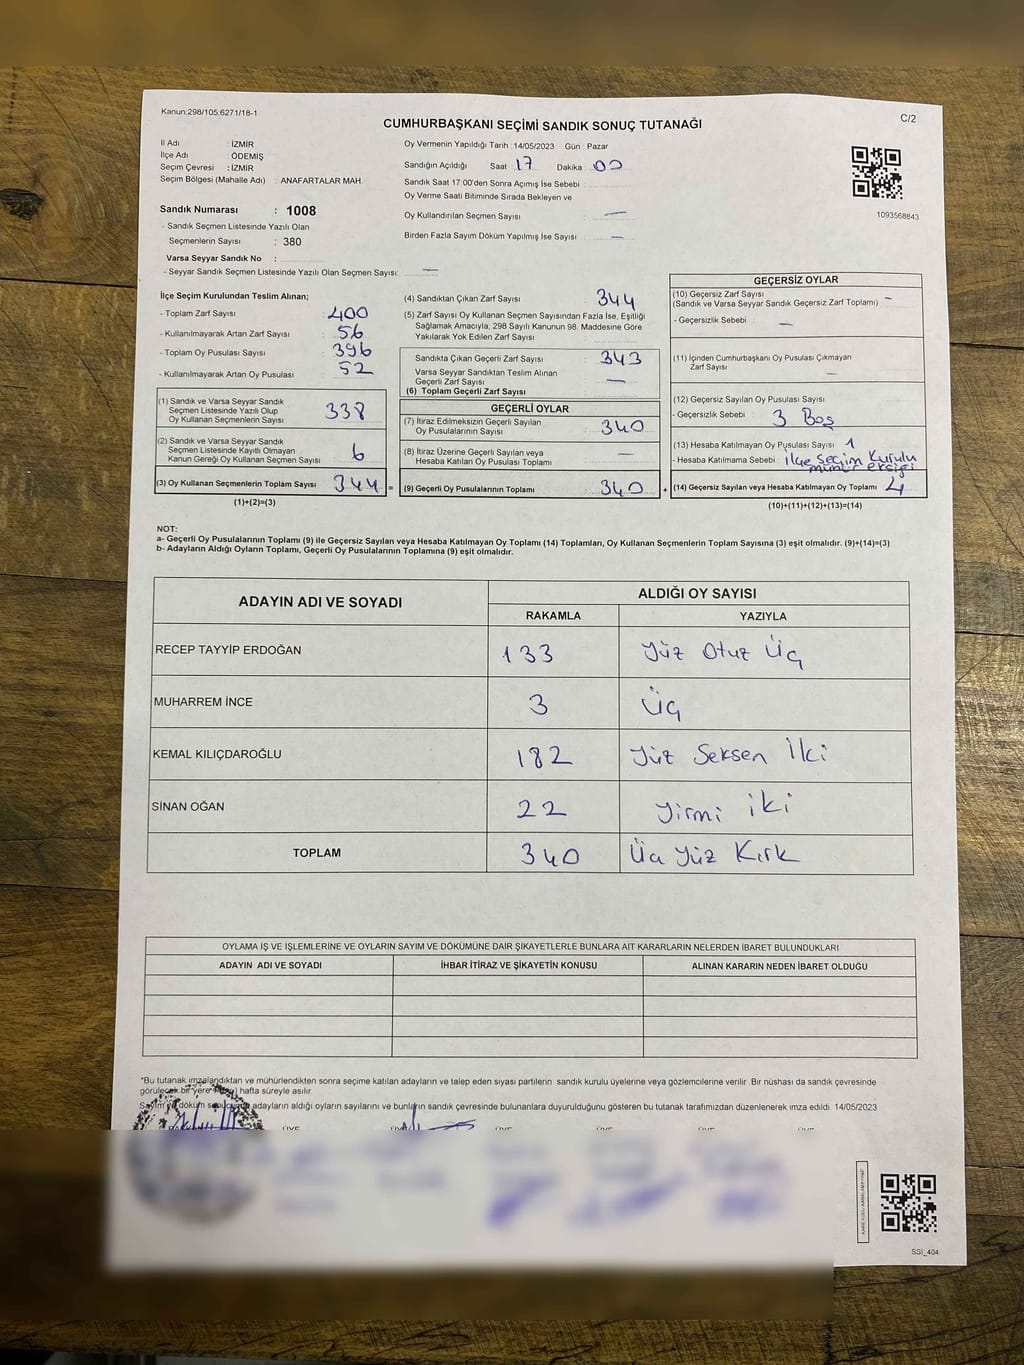 Kanun:298/105,6271/18-1
C/2
CUMHURBAŞKANI SEÇİMİ SANDIK SONUÇ TUTANAĞI
İl Adı : İZMİR
İlçe Adı : ÖDEMİŞ
Seçim Çevresi : İZMİR
Seçim Bölgesi (Mahalle Adı) : ANAFARTALAR MAH.
Oy Vermenin Yapıldığı Tarih :14/05/2023 Gün : Pazar
Sandığın Açıldığı Saat 17 Dakika 00
Sandık Saat 17:00'den Sonra Açımış İse Sebebi :
Oy Verme Saati Bitiminde Sırada Bekleyen ve
Oy Kullandırılan Seçmen Sayısı : —
Birden Fazla Sayım Döküm Yapılmış İse Sayısı : —
1093568843
Sandık Numarası : 1008
- Sandık Seçmen Listesinde Yazılı Olan
Seçmenlerin Sayısı : 380
Varsa Seyyar Sandık No :
- Seyyar Sandık Seçmen Listesinde Yazılı Olan Seçmen Sayısı: —
İlçe Seçim Kurulundan Teslim Alınan;
- Toplam Zarf Sayısı : 400
- Kullanılmayarak Artan Zarf Sayısı : 56
- Toplam Oy Pusulası Sayısı : 396
- Kullanılmayarak Artan Oy Pusulası : 52
(1) Sandık ve Varsa Seyyar Sandık
Seçmen Listesinde Yazılı Olup
Oy Kullanan Seçmenlerin Sayısı 338
(2) Sandık ve Varsa Seyyar Sandık
Seçmen Listesinde Kayıtlı Olmayan
Kanun Gereği Oy Kullanan Seçmen Sayısı 6
(3) Oy Kullanan Seçmenlerin Toplam Sayısı 344 =
(1)+(2)=(3)
(4) Sandıktan Çıkan Zarf Sayısı : 344
(5) Zarf Sayısı Oy Kullanan Seçmen Sayısından Fazla İse, Eşitliği
Sağlamak Amacıyla; 298 Sayılı Kanunun 98. Maddesine Göre
Yakılarak Yok Edilen Zarf Sayısı :
Sandıkta Çıkan Geçerli Zarf Sayısı : 343
Varsa Seyyar Sandıktan Teslim Alınan
Geçerli Zarf Sayısı : —
(6) Toplam Geçerli Zarf Sayısı :
GEÇERLİ OYLAR
(7) İtiraz Edilmeksizin Geçerli Sayılan
Oy Pusulalarının Sayısı : 340
(8) İtiraz Üzerine Geçerli Sayılan veya
Hesaba Katılan Oy Pusulası Toplamı : —
(9) Geçerli Oy Pusulalarının Toplamı : 340 +
GEÇERSİZ OYLAR
(10) Geçersiz Zarf Sayısı
(Sandık ve Varsa Seyyar Sandık Geçersiz Zarf Toplamı) : —
- Geçersizlik Sebebi : —
(11) İçinden Cumhurbaşkanı Oy Pusulası Çıkmayan
Zarf Sayısı : —
(12) Geçersiz Sayılan Oy Pusulası Sayısı :
- Geçersizlik Sebebi : 3 Boş
(13) Hesaba Katılmayan Oy Pusulası Sayısı : 1
- Hesaba Katılmama Sebebi : ilçe Seçim Kurulu
mühür eksiği
(14) Geçersiz Sayılan veya Hesaba Katılmayan Oy Toplamı : 4
(10)+(11)+(12)+(13)=(14)
NOT:
a- Geçerli Oy Pusulalarının Toplamı (9) ile Geçersiz Sayılan veya Hesaba Katılmayan Oy Toplamı (14) Toplamları, Oy Kullanan Seçmenlerin Toplam Sayısına (3) eşit olmalıdır. (9)+(14)=(3)
b- Adayların Aldığı Oyların Toplamı, Geçerli Oy Pusulalarının Toplamına (9) eşit olmalıdır.
ADAYIN ADI VE SOYADI
ALDIĞI OY SAYISI
RAKAMLA YAZIYLA
RECEP TAYYİP ERDOĞAN 133 Yüz Otuz Üç
MUHARREM İNCE 3 Üç
KEMAL KILIÇDAROĞLU 182 Yüz Seksen İki
SİNAN OĞAN 22 Yirmi iki
TOPLAM 340 Üç Yüz Kırk
OYLAMA İŞ VE İŞLEMLERİNE VE OYLARIN SAYIM VE DÖKÜMÜNE DAİR ŞİKAYETLERLE BUNLARA AİT KARARLARIN NELERDEN İBARET BULUNDUKLARI
ADAYIN ADI VE SOYADI İHBAR İTİRAZ VE ŞİKAYETİN KONUSU ALINAN KARARIN NEDEN İBARET OLDUĞU
*Bu tutanak imzalandıktan ve mühürlendikten sonra seçime katılan adayların ve talep eden siyasi partilerin sandık kurulu üyelerine veya gözlemcilerine verilir. Bir nüshası da sandık çevresinde
görülecek bir yere hafta süreyle asılır.
Sayım ve döküm adayların aldığı oyların sayılarını ve bunların sandık çevresinde bulunanlara duyurulduğunu gösteren bu tutanak tarafımızdan düzenlenerek imza edildi. 14/05/2023
ÜYE ÜYE ÜYE ÜYE ÜYE
SSI_404